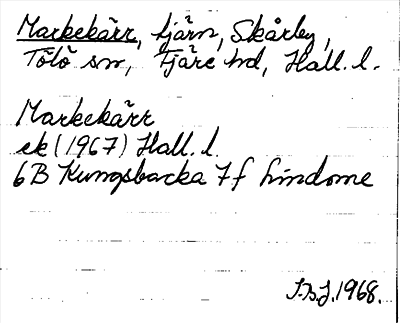 Markekärr, tjärn, Skårby,
Tölö sn, Fjäre hd, Hall. l.
Markekärr
ek (1967) Hall. l.
6B Kungsbacka 7f Lindome
S.B.J. 1968.